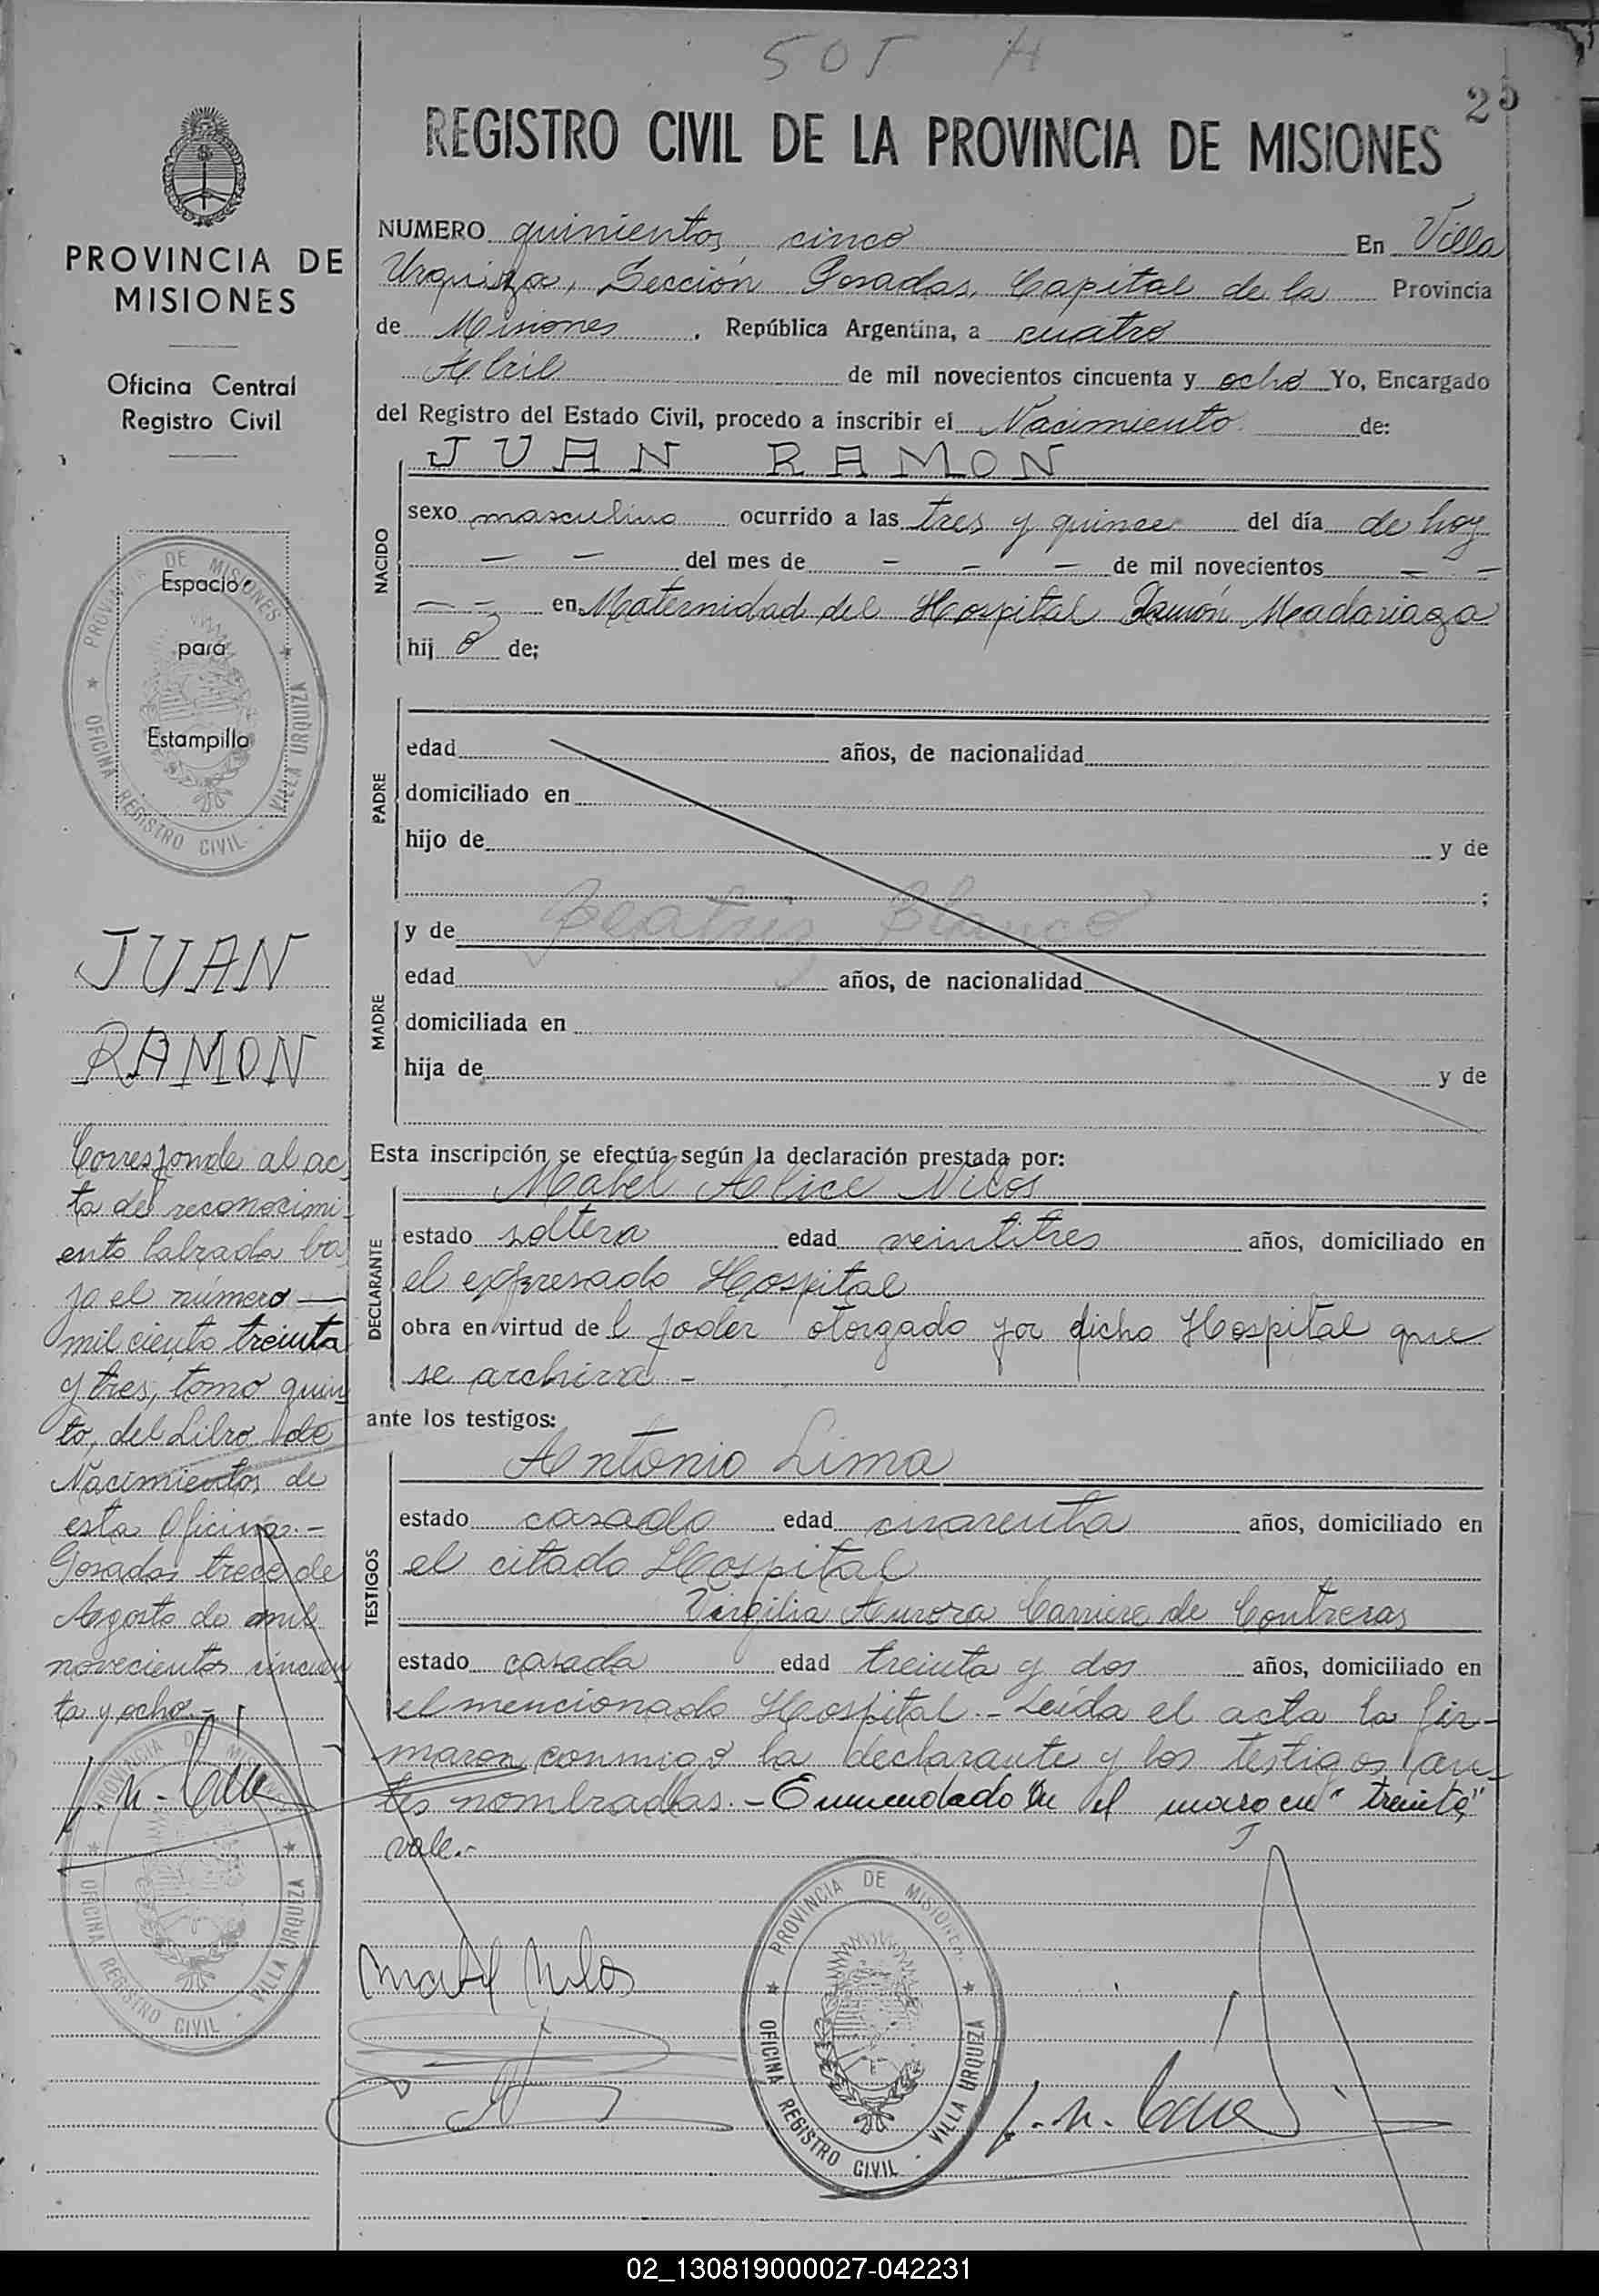 505 H
25
REGISTRO CIVIL DE LA PROVINCIA DE MISIONES
PROVINCIA DE
MISIONES
Oficina Central
Registro Civil
Espacio
para
Estampilla
PROVINCIA DE MISIONES
OFICINA REGISTRO CIVIL - VILLA URQUIZA
JUAN
RAMON
Corresponde al ac
ta de reconocimi-
ento labrada ba
jo el número —
mil ciento treinta
y tres, tomo quin
to, del Libro de
Nacimientos de
esta Oficina.-
Posadas trece de
Agosto de mil
novecientos cincuen
ta y ocho.-
PROVINCIA DE MISIONES
OFICINA REGISTRO CIVIL - VILLA URQUIZA
NUMERO quinientos cinco En Villa
Urquiza, Sección Posadas, Capital de la Provincia
de Misiones, República Argentina, a cuatro
Abril de mil novecientos cincuenta y ocho Yo, Encargado
del Registro del Estado Civil, procedo a inscribir el Nacimiento de:
JUAN RAMON
NACIDO
sexo masculino ocurrido a las tres y quince del día de hoy
— — del mes de — — — de mil novecientos — —
— — en Maternidad del Hospital Ramón Madariaga
hijo de;
PADRE
edad años, de nacionalidad
domiciliado en
hijo de y de
;
MADRE
y de Beatriz Blanco
edad años, de nacionalidad
domiciliada en
hija de y de
Esta inscripción se efectúa según la declaración prestada por:
Mabel Alice Nilos
DECLARANTE
estado soltera edad veintitres años, domiciliado en
el expresado Hospital
obra en virtud de l poder otorgado por dicho Hospital que
se archiva.-
ante los testigos:
Antonio Lima
TESTIGOS
estado casado edad cuarenta años, domiciliado en
el citado Hospital
Virgilia Aurora Carriere de Contreras
estado casada edad treinta y dos años, domiciliado en
el mencionado Hospital.- Leída el acta la fir-
maron conmigo la declarante y los testigos an-
tes nombrados.- Enmendado en el margen "treinta"
vale.-
Mabel Nilos
PROVINCIA DE MISIONES
OFICINA REGISTRO CIVIL - VILLA URQUIZA
02_130819000027-042231